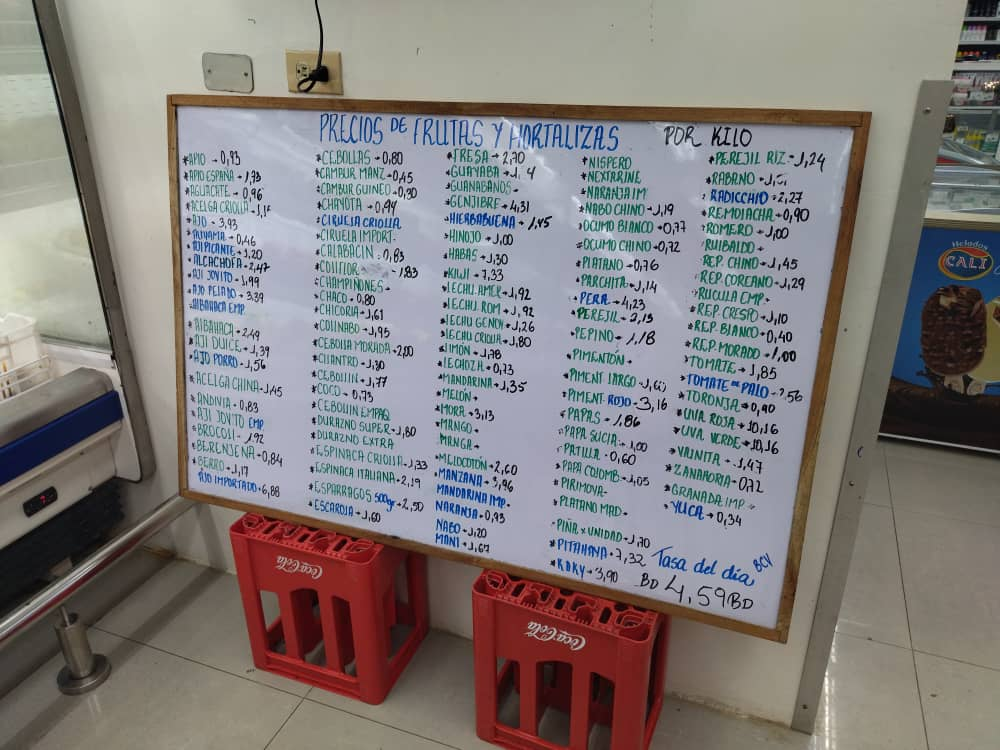 PRECIOS DE FRUTAS Y HORTALIZAS POR KILO
*APIO → 0,93
*APIO ESPAÑA → 1,93
*AGUACATE → 0,96
*ACELGA CRIOLLA → 1,1
*AJO → 3,93
*AUYAMA → 0,46
*AJI PICANTE → 1,20
*ALCACHOFA → 2,47
*AJI JOVITO → 1,99
*AJO PELADO → 3,39
*ALBAHACA EMP
*ALBAHACA → 2,49
*AJI DULCE → 1,39
*AJO PORRO → 1,56
*ACELGA CHINA → 1,45
*ANDIVIA → 0,83
*AJI JOVITO EMP
*BROCOLI → 1,92
*BERENJENA → 0,84
*BERRO → 1,17
AJO IMPORTADO → 6,88
*CEBOLLAS → 0,80
*CAMBUR MANZ → 0,45
*CAMBUR GUINEO → 0,30
*CHAYOTA → 0,94
*CIRUELA CRIOLLA
*CIRUELA IMPORT →
*CALABACIN → 0,83
*COLIFLOR → 1,83
*CHAMPIÑONES →
*CHACO → 0,80
*CHICORIA → 1,61
*COLINABO → 1,95
*CEBOLLA MORADA → 2,00
*CILANTRO → 1,30
*CEBOLLIN → 1,77
*COCO → 0,73
*CEBOLLIN EMPAQ
*DURAZNO SUPER → 1,80
*DURAZNO EXTRA
*ESPINACA CRIOLLA → 1,33
*ESPINACA ITALIANA → 2,19
*ESPARRAGOS 500gr → 2,50
*ESCAROLA → 1,60
*FRESA → 2,70
*GUAYABA → 1, 4
*GUANABANOS →
*GENJIBRE → 4,31
*HIERBABUENA → 1,45
*HINOJO → 1,00
*HABAS → 1,30
*KIWI → 7,33
*LECHU AMER → 1,92
*LECHU ROM → 1,92
*LECHU GENOV → 1,26
*LECHU CRIOLLA → 1,80
*LIMON → 1,78
*LECHOZA → 0,73
*MANDARINA → 1,35
*MELON →
*MORA → 3,13
*MANGO →
*MANGA →
*MELOCOTÓN → 2,60
*MANZANA → 3,96
MANDARINA IMP →
*NARANJA → 0,93
NABO → 1,20
MANI → 1,67
*NISPERO
*NEXTARINE
*NARANJA IM
*NABO CHINO → 1,19
*OCUMO BLANCO → 0,77
*OCUMO CHINO → 0,72
*PLATANO → 0,76
*PARCHITA → 1,14
*PERA → 4,23
*PEREJIL → 2,13
*PEPINO → 1,18
*PIMENTÓN →
*PIMENT LARGO → 1,60
*PIMENT ROJO → 3,16
*PAPAS → 1,86
*PAPA SUCIA → 1,00
*PATILLA → 0,60
*PAPA COLOMB → 1,05
*PIRIMOYA →
*PLATANO MAD →
*PIÑA x UNIDAD → 1,70
*PITAHAYA → 7,32
*KAKY → 3,90
*PEREJIL RIZ → 1,24
*RABANO →
*RADICCHIO → 2,27
*REMOLACHA → 0,90
*ROMERO → 1,00
*RUIBALDO →
*REP. CHINO → 1,45
*REP. COREANO → 1,29
*RUCULA EMP →
*REP CRESPO → 1,10
*REP. BLANCO → 0,40
*REP. MORADO → 1,00
*TOMATE → 1,85
*TOMATE DE PALO → 2,56
*TORONJA → 0,90
*UVA ROJA → 10,16
*UVA VERDE → 10,16
*VAINITA → 1,47
*ZANAHORIA 0,72
*GRANADA IMP →
*YUCA → 0,34
Tasa del día BCV
BD 4,59 BD
Coca-Cola
Coca-Cola
Helados
CALI